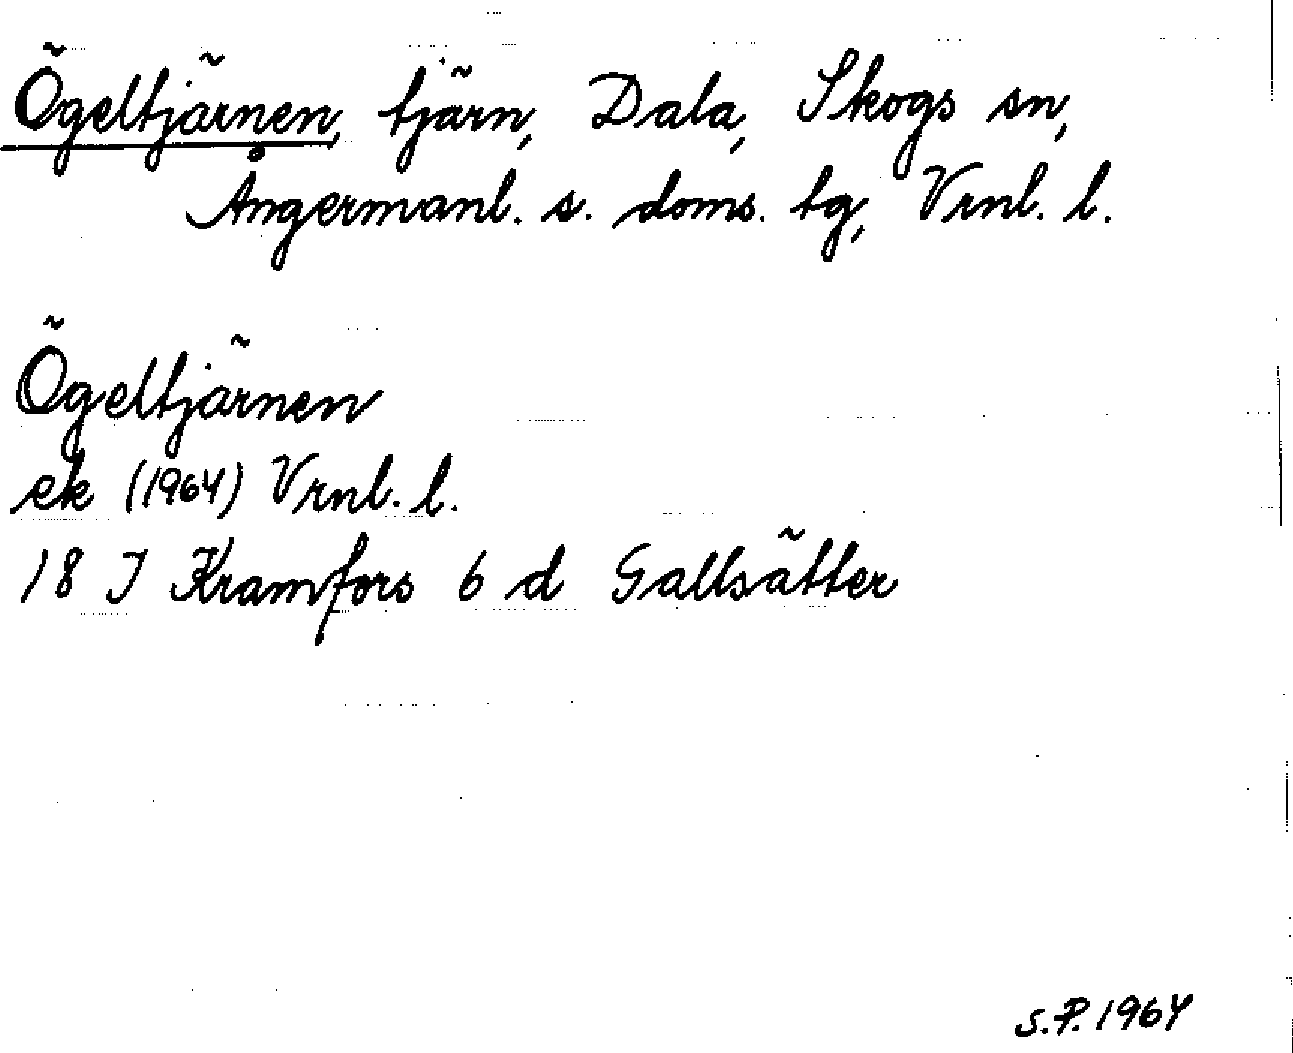 Ögeltjärnen, tjärn, Dala, Skogs sn,
Ångermanl. s. doms. tg, Vrnl. l.
Ögeltjärnen
ek (1964) Vrnl. l.
18 J Kramfors 6 d Gallsätter
S.P. 1964